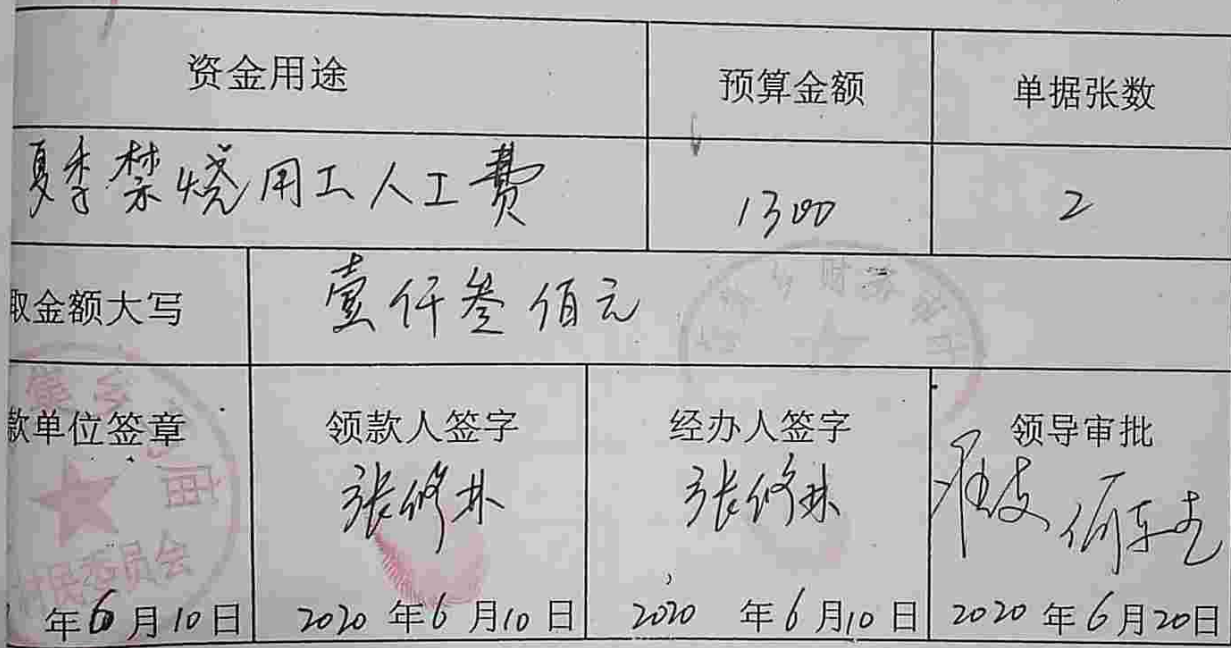 资金用途 预算金额 单据张数
夏季禁烧用工人工费 1300 2
取金额大写 壹仟叁佰元
款单位签章 领款人签字 经办人签字 领导审批
张修林 张修林
村民委员会
年6月10日 2020年6月10日 2020年6月10日 2020年6月20日